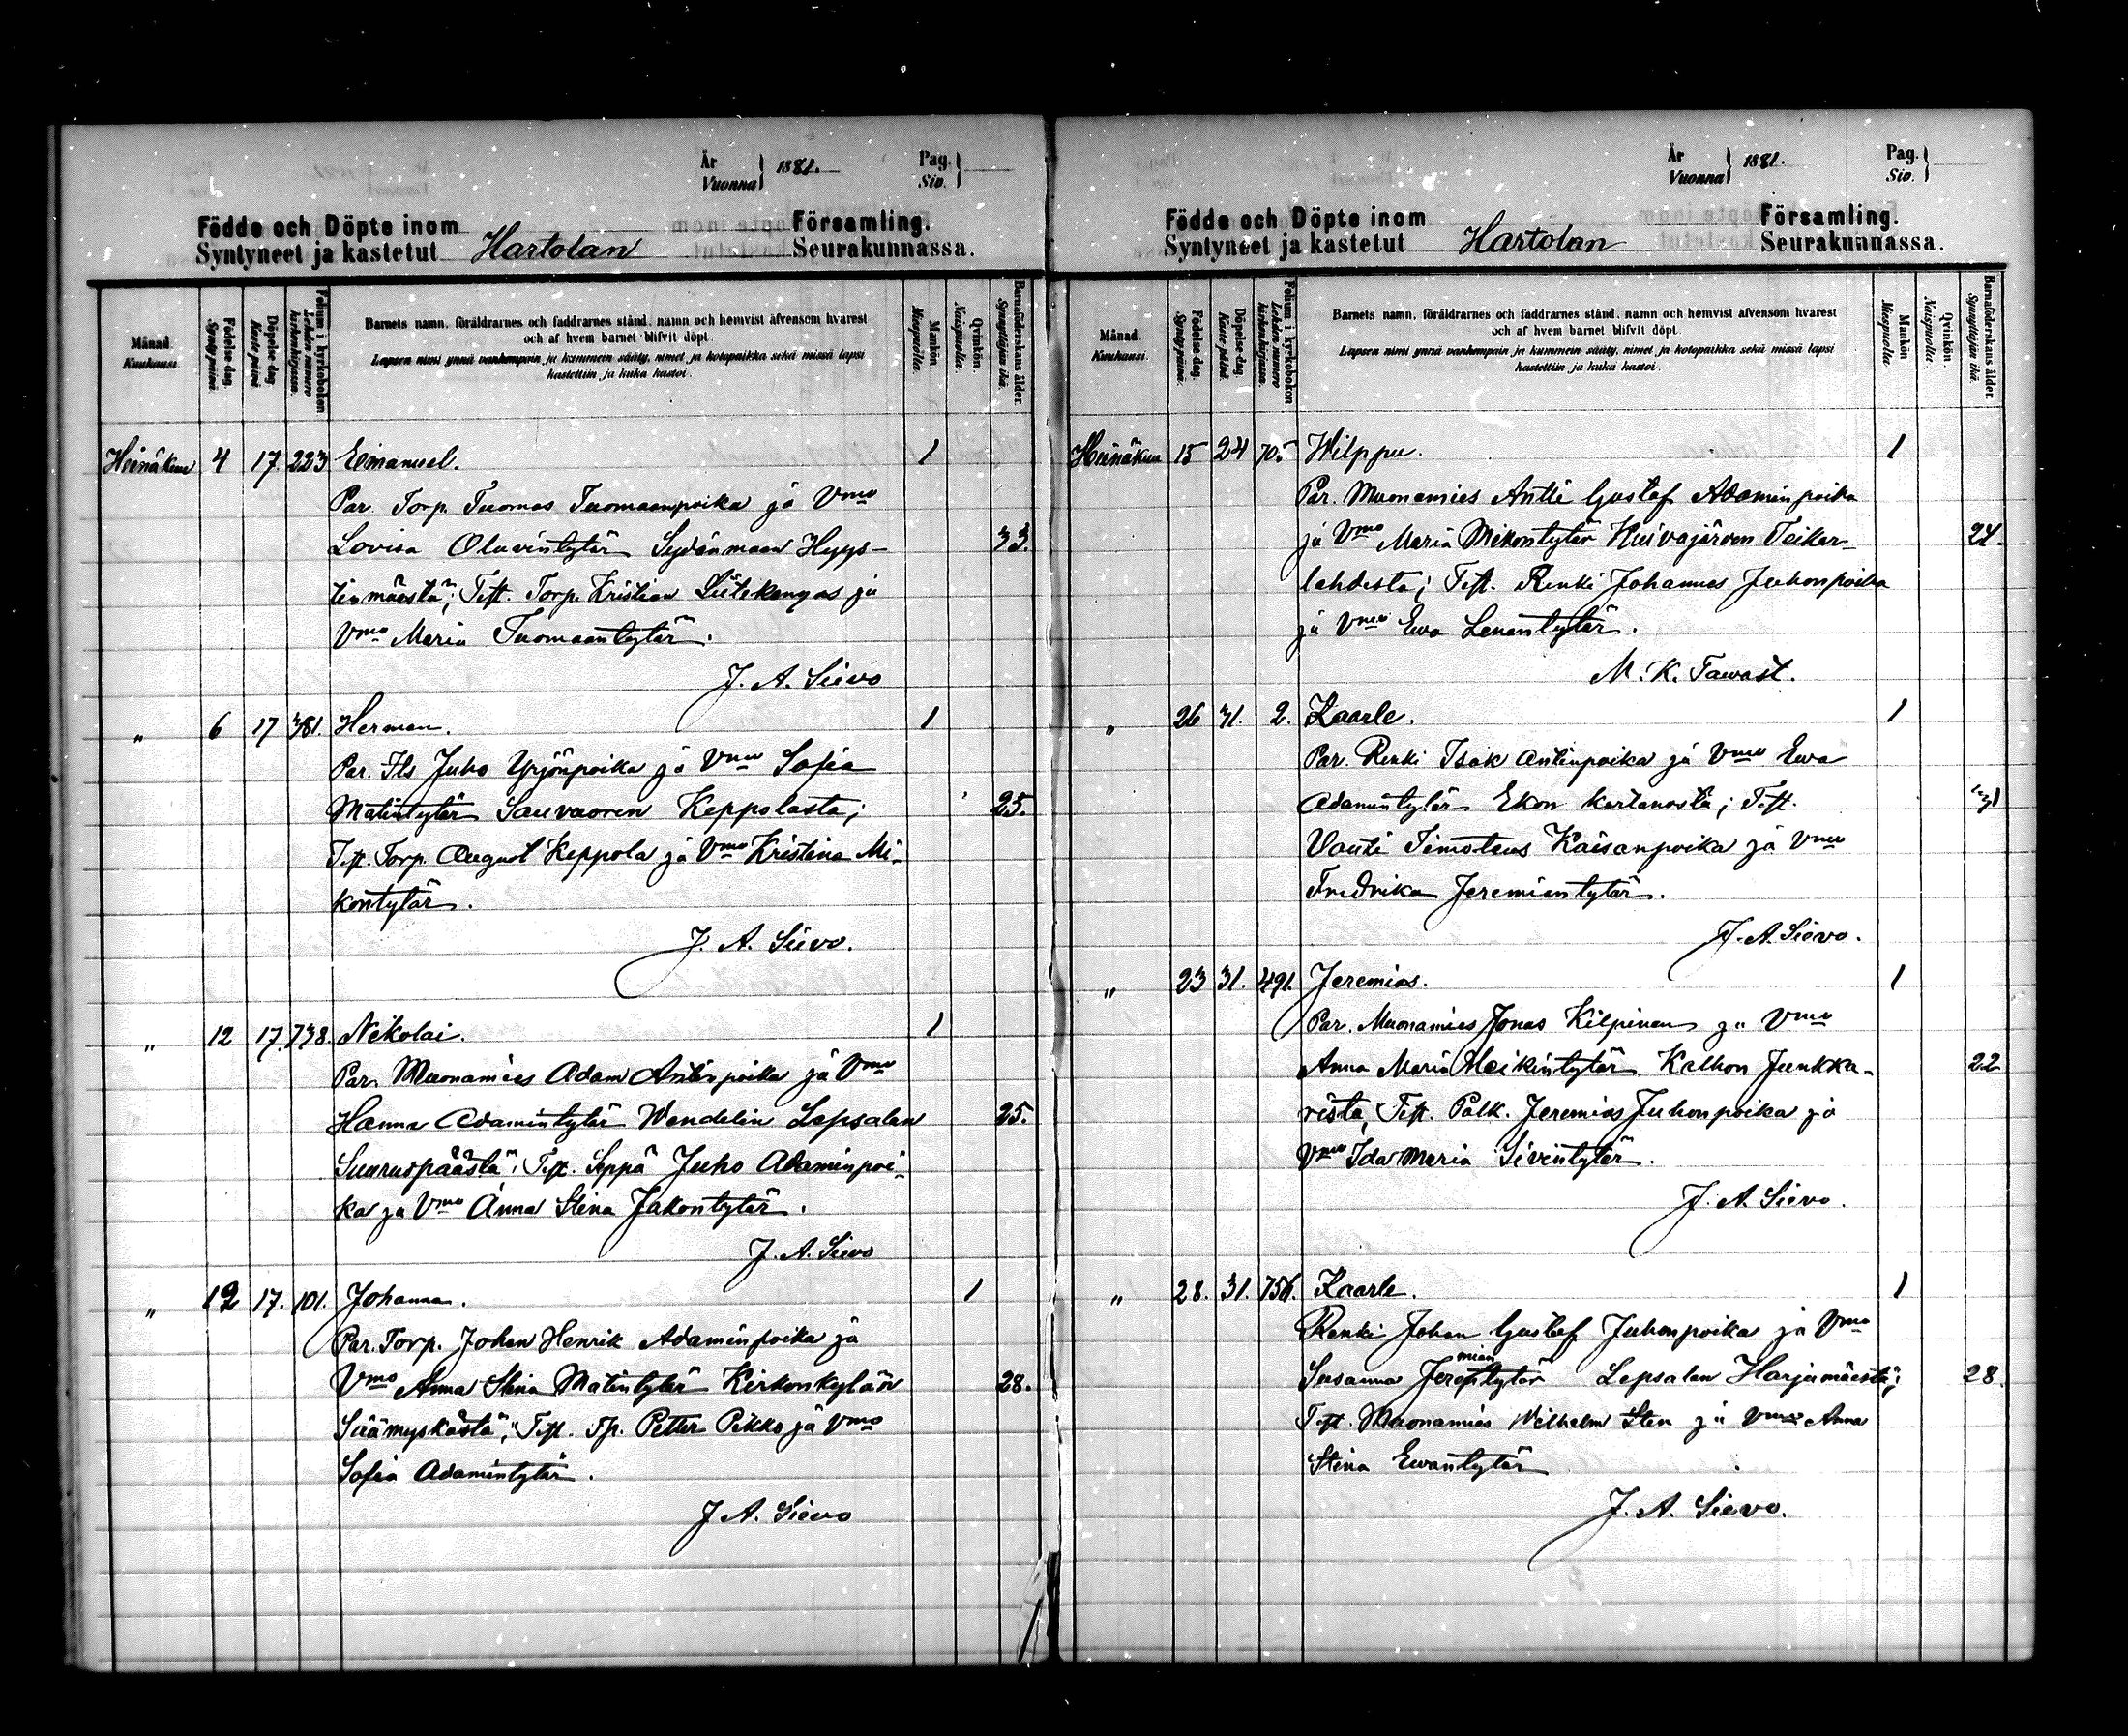 År
Vuonna } 1881.
Pag.
Siv. }
Födde och Döpte inom Församling.
Syntyneet ja kastetut Hartolan Seurakunnassa.
Månad. Kuukausi.
Födelse-dag. Synty päivä.
Döpelse-dag Kaste päivä
Folium i kyrkoboken Lehden numero kirkonkirjassa.
Barnets namn, föräldrarnes och faddrarnes stånd, namn och hemvist äfvensom hvarest
och af hvem barnet blifvit döpt.
Lapsen nimi ynnä vanhempain ja kummein sääty, nimet ja kotopaikka sekä missä lapsi
kastettiin ja kuka kastoi.
Mankön Miespuolia.
Qvinkön. Naispuolia.
Barnaföderskans ålder. Synnyttäjän ikä.
Heinäkuu 4 17 223 Emanuel. 1
Par. Torp. Tuomas Tuomaanpoika ja Vmo
Lovisa Olavintytär Sydänmaan Hyys- 33.
tinmäestä; Test. Torp. Kristian Liitekangas ja
Vmo Maria Tuomaantytär.
J. A. Sievo
" 6 17 381. Herman. 1
Par. Its Juho Yrjönpoika ja Vmo Sofia
Matintytär Sauvaoren Keppolasta; 25.
Test. Torp. August Keppola ja Vmo Kristina Mi-
kontytär.
J. A. Sievo.
" 12 17. 738. Nikolai. 1
Par. Muonamies Adam Antinpoika ja Vmo
Hanna Adamintytär Wendelin Lepsalan 25.
Suuruspäästä; Test. Seppä Juho Adaminpoi-
ka ja Vmo Anna Stina Jakontytär.
J. A. Sievo
" 12 17. 101. Johanna. 1
Par. Torp. Johan Henrik Adaminpoika ja
Vmo Anna Stina Matintytär Kirkonkylään 28.
Säämyskästä; Test. Tp. Petter Pekko ja Vmo
Sofia Adamintytär.
J A. Sievo
År
Vuonna } 1881.
Pag.
Siv. }
Födde och Döpte inom Församling.
Syntyneet ja kastetut Hartolan Seurakunnassa.
Månad. Kuukausi.
Födelse-dag. Synty päivä.
Döpelse-dag. Kaste päivä.
Folium i kyrkoboken. Lehden numero kirkonkirjassa.
Barnets namn, föräldrarnes och faddrarnes stånd, namn och hemvist äfvensom hvarest
och af hvem barnet blifvit döpt.
Lapsen nimi ynnä vanhempain ja kummein sääty, nimet ja kotopaikka sekä missä lapsi
kastettiin ja kuka kastoi.
Mankön Miespuolia
Qvinkön. Naispuolia.
Barnaföderskans ålder. Synnyttäjän ikä.
Heinäkuu 15 24 705 Wilppu. 1
Par. Muonamies Antti Gustaf Adaminpoika
ja Vmo Maria Mikontytär Kuivajärven Teikar- 24.
lahdesta; Test. Renki Johannes Juhonpoika
ja Vmo Ewa Lenantytär.
M. K. Tawast.
" 26 31. 2. Kaarle. 1
Par. Renki Isak Antinpoika ja Vmo Ewa
Adamintytär Ekon kartanosta; Test. 31
Vouti Timoteus Kaisanpoika ja Vmo
Fredrika Jeremiantytär.
J. A. Sievo.
" 23 31. 491. Jeremias. 1
Par. Muonamies Jonas Kilpinen ja Vmo
Anna Maria Heikintytär Kalhon Junkka- 22
rista, Test. Palk. Jeremias Juhonpoika ja
Vmo Ida Maria Siventytär.
J. A. Sievo.
" 28. 31. 756. Kaarle. 1
Renki Johan Gustaf Juhonpoika ja Vmo
Susanna Jeremiantytär Lepsalan Harjumäestä; 28.
Test. Muonamies Wilhelm Sten ja Vmo Anna
Stina Ewantytär
J. A. Sievo.